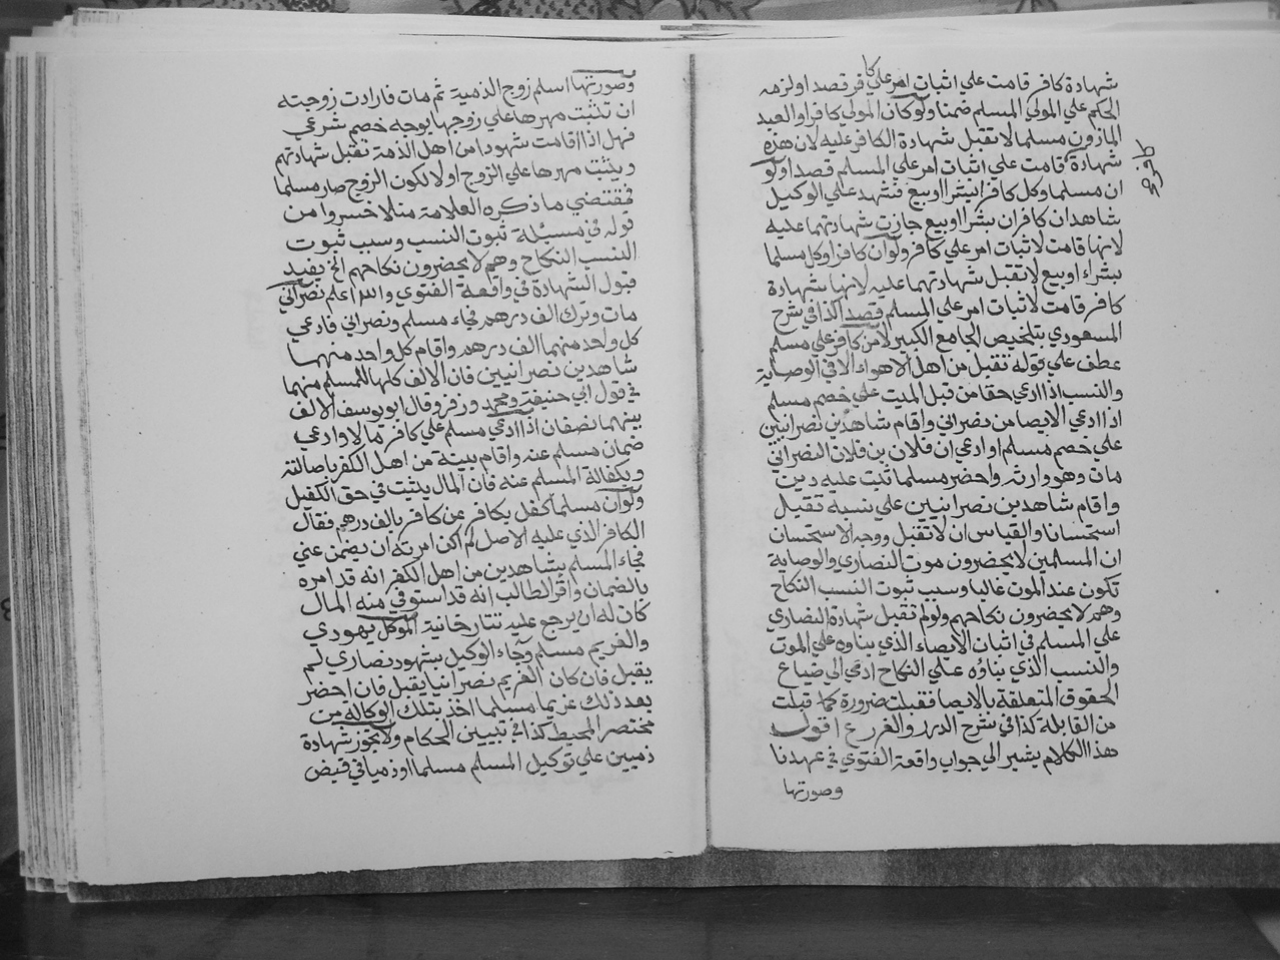 شهادة كافر قامت علي اثبات امر علي كافر قصدا ولزمه
الحكم علي المولي المسلم ضمنا ولو كان المولي كافرا والعبد
الماذون مسلما لا تقبل شهادة الكافر عليه لان هذه
شهادة قامت علي اثبات امر علي المسلم قصدا ولو
كافر ع
ان مسلما وكل كافرا بشرا او بيع فشهد علي الوكيل
شاهدان كافران بشرا او بيع جازت شهادتهما عليه
لانها قامت لاثبات امر علي كافر ولو ان كافرا وكل مسلما
بشراء او بيع لا تقبل شهادتهما عليه لانها شهادة
كافر قامت لاثبات امر علي المسلم قصدا كذا في شرح
المسعودي بتلخيص الجامع الكبير لا من كافر علي مسلم
عطف علي قوله تقبل من اهل الاهواء الا في الوصاية
والنسب اذا ادعي حقا من قبل الميت علي خصم مسلم
اذا ادعي الايصا من نصراني واقام شاهدين نصرانيين
علي خصم مسلم او ادعي ان فلان بن فلان النصراني
مات وهو وارثه واحضر مسلما ثبت عليه دين
واقام شاهدين نصرانيين علي نسبه تقبل
استحسانا والقياس ان لا تقبل ووجه الاستحسان
ان المسلمين لا يحضرون موت النصاري والوصاية
تكون عند الموت غالبا وسبب ثبوت النسب النكاح
وهم لا يحضرون نكاحهم ولو لم تقبل شهادة النصاري
علي المسلم في اثبات الايصاء الذي بناوه علي الموت
والنسب الذي بناوه علي النكاح ادي الي ضياع
الحقوق المتعلقة بالايصا فقبلت ضرورة كما قبلت
من القابلة كذا في شرح الدرر والغرر ع اقول
هذا الكلام يشير الي جواب واقعة الفتوي في عهدنا
وصورتها
وصورتها اسلم زوج الذمية ثم مات فارادت زوجته
ان تثبت مهرها علي زوجها بوجه خصم شرعي
فهل اذا اقامت شهودا من اهل الذمة تقبل شهادتهم
ويثبت مهرها علي الزوج او لا لكون الزوج صار مسلما
فمقتضي ما ذكره العلامة منلا خسروا من
قوله في مسئلة ثبوت النسب وسبب ثبوت
النسب النكاح وهم لا يحضرون نكاحهم الخ يفيد
قبول الشهادة في واقعة الفتوي والله اعلم نصراني
مات وترك الف درهم فجاء مسلم ونصراني فادعي
كل واحد منهما الف درهم واقام كل واحد منهما
شاهدين نصرانيين فان الالف كلها للمسلم منهما
في قول ابي حنيفة ومحمد وزفر وقال ابو يوسف الالف
بينهما نصفان اذا ادعي مسلم علي كافر مالا وادعي
ضمان مسلم عنه واقام بينة من اهل الكفر باصالته
وبكفالة المسلم عنه فان المال يثبت في حق الكفيل
ولو ان مسلما كفل بكافر عن كافر بالف درهم فقال
الكافر الذي عليه الاصل لم اكن امرته ان يضمن عني
فجاء المسلم بشاهدين من اهل الكفر انه قد امره
بالضمان واقر الطالب انه قد استوفي منه المال
كان له ان يرجع عليه تتارخانية الموكل يهودي
والغريم مسلم وجاء الوكيل بشهود نصاري لم
يقبل فان كان الغريم نصرانيا يقبل فان احضر
بعد ذلك غريما مسلما اخذ بتلك الوكالة من
مختصر المحيط كذا في تبيين الحكام ولا يجوز شهادة
ذميين علي توكيل المسلم مسلما او ذميا في قبض